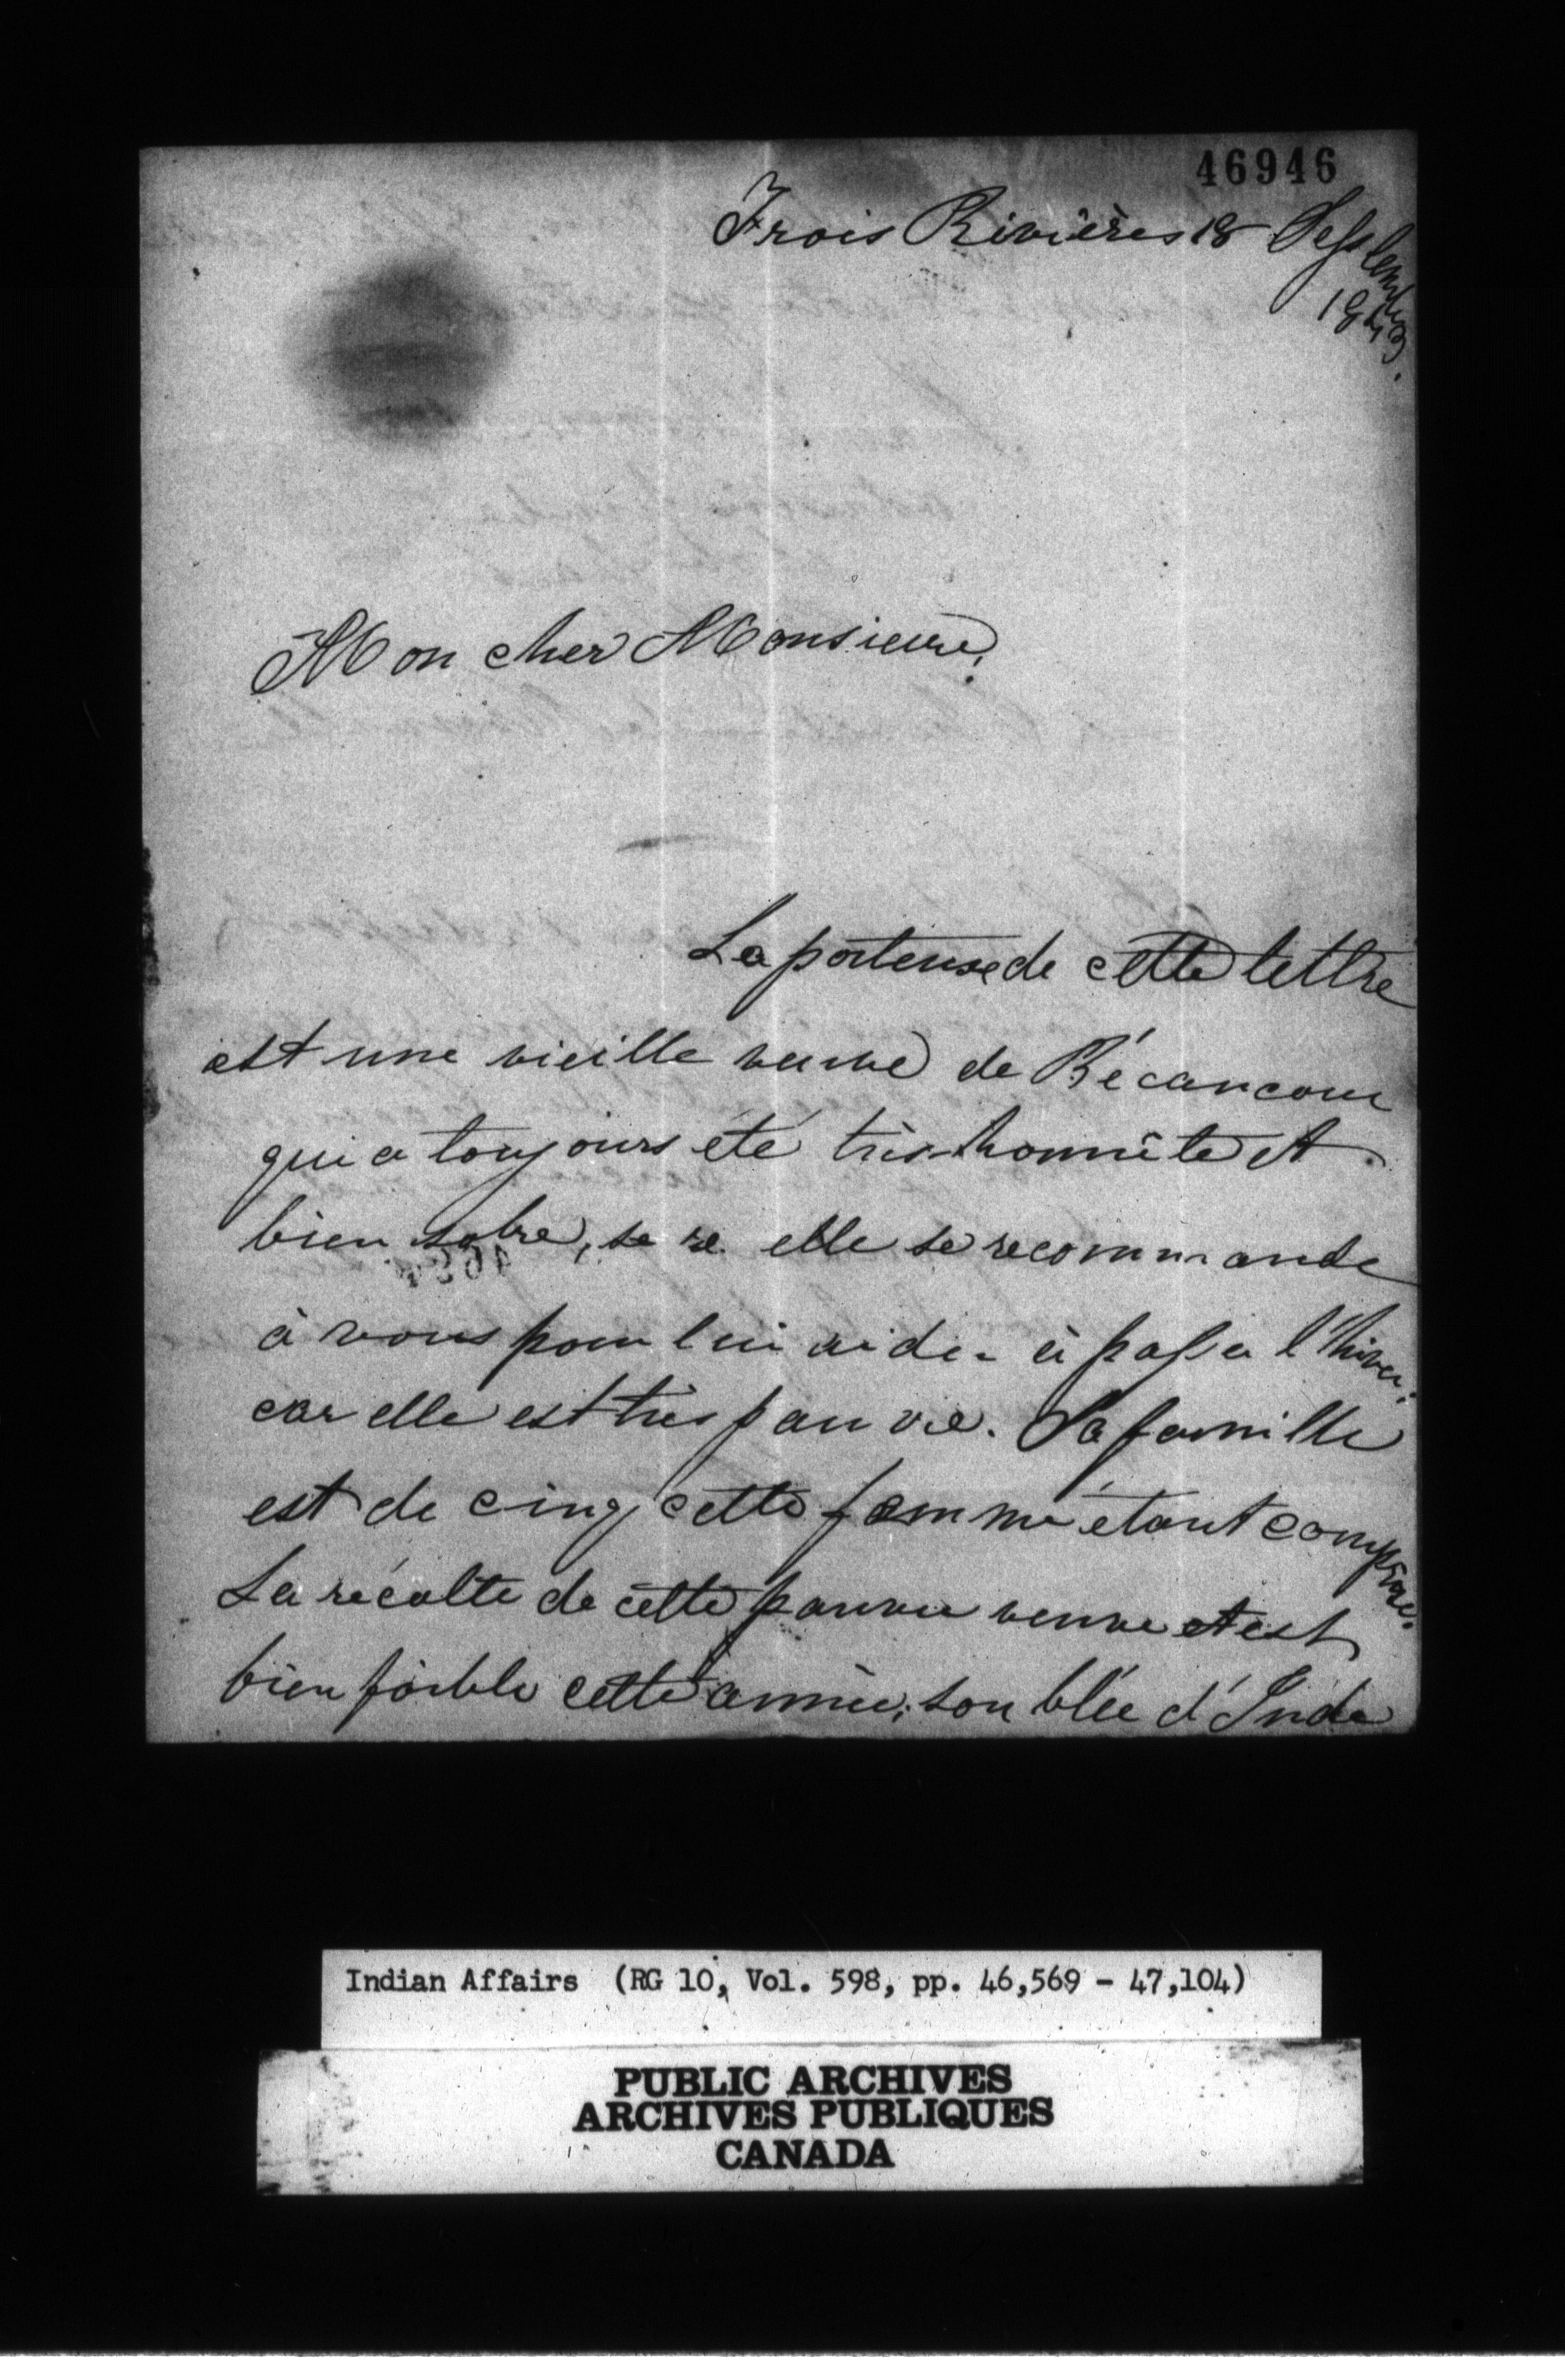 46946
Trois Rivières 18 Septembre
184
Mon cher Monsieur,
La porteuse de cette lettre
est une vieille veuve de Bécancour
qui a toujours été très-honnête et
bien sobre, se re elle se recommande
à vous pour lui aider à passer l'hiver,
car elle est très pauvre. Sa famille
est de cinq cette femme étant comprise.
La récolte de cette pauvre veuve et est
bien foible cette année; son blée d'Inde
Indian Affairs (RG 10, Vol. 598, pp. 46,569 - 47,104)
PUBLIC ARCHIVES
ARCHIVES PUBLIQUES
CANADA